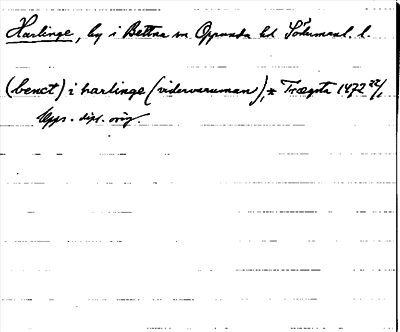 Harlinge, by i Bettna sn Oppunda hd Södermanl. l.
(benct) i harlinge (vidervaruman), * Trægsta 1472 22/
Upps. dipl. orig